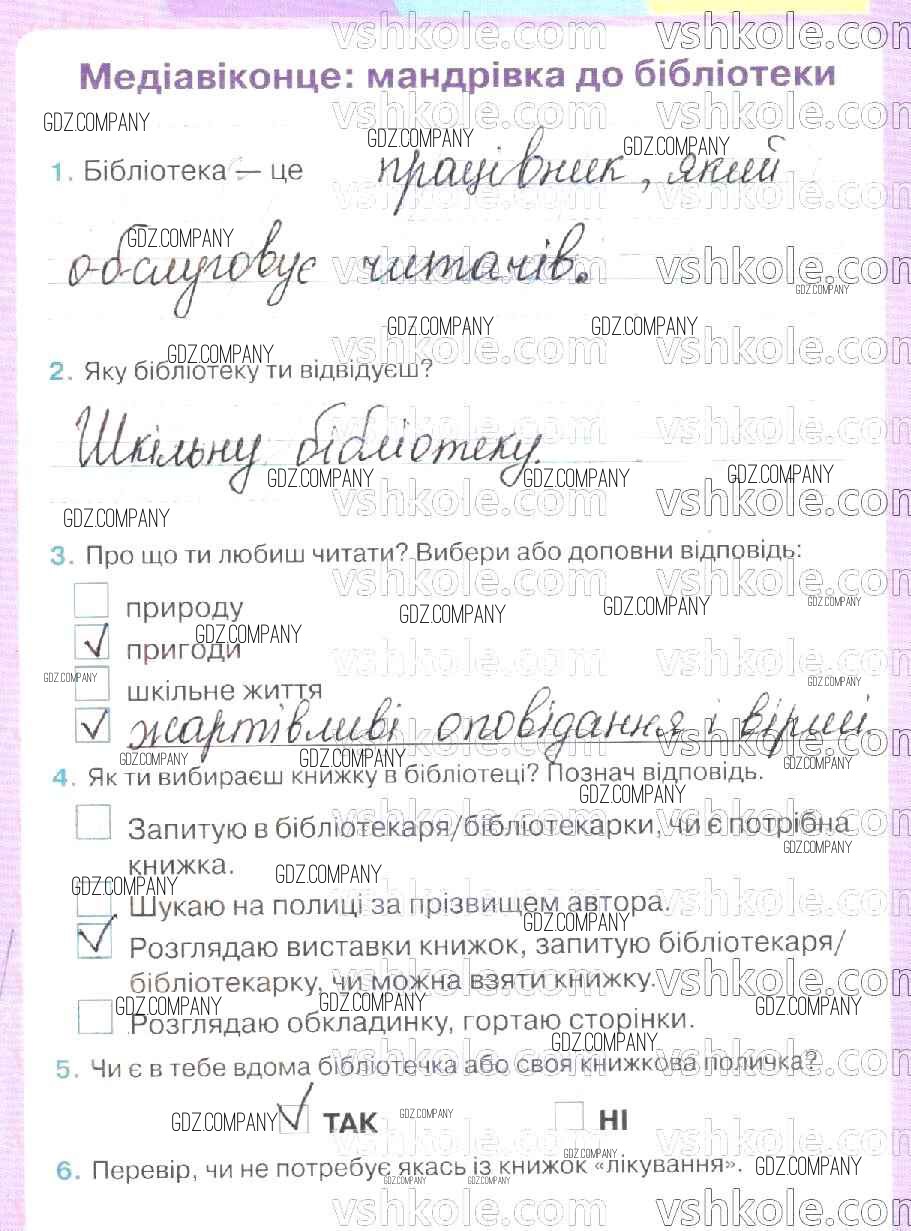 Медіавіконце: мандрівка до бібліотеки
1. Бібліотека — це працівник, який
обслуговує читачів.
2. Яку бібліотеку ти відвідуєш?
Шкільну бібліотеку.
3. Про що ти любиш читати? Вибери або доповни відповідь:
природу
пригоди
шкільне життя
жартівливі оповідання і вірші.
4. Як ти вибираєш книжку в бібліотеці? Познач відповідь.
Запитую в бібліотекаря/бібліотекарки, чи є потрібна
книжка.
Шукаю на полиці за прізвищем автора.
Розглядаю виставки книжок, запитую бібліотекаря/
бібліотекарку, чи можна взяти книжку.
Розглядаю обкладинку, гортаю сторінки.
5. Чи є в тебе вдома бібліотечка або своя книжкова поличка?
ТАК НІ
6. Перевір, чи не потребує якась із книжок «лікування».
GDZ.COMPANY
vshkole.com